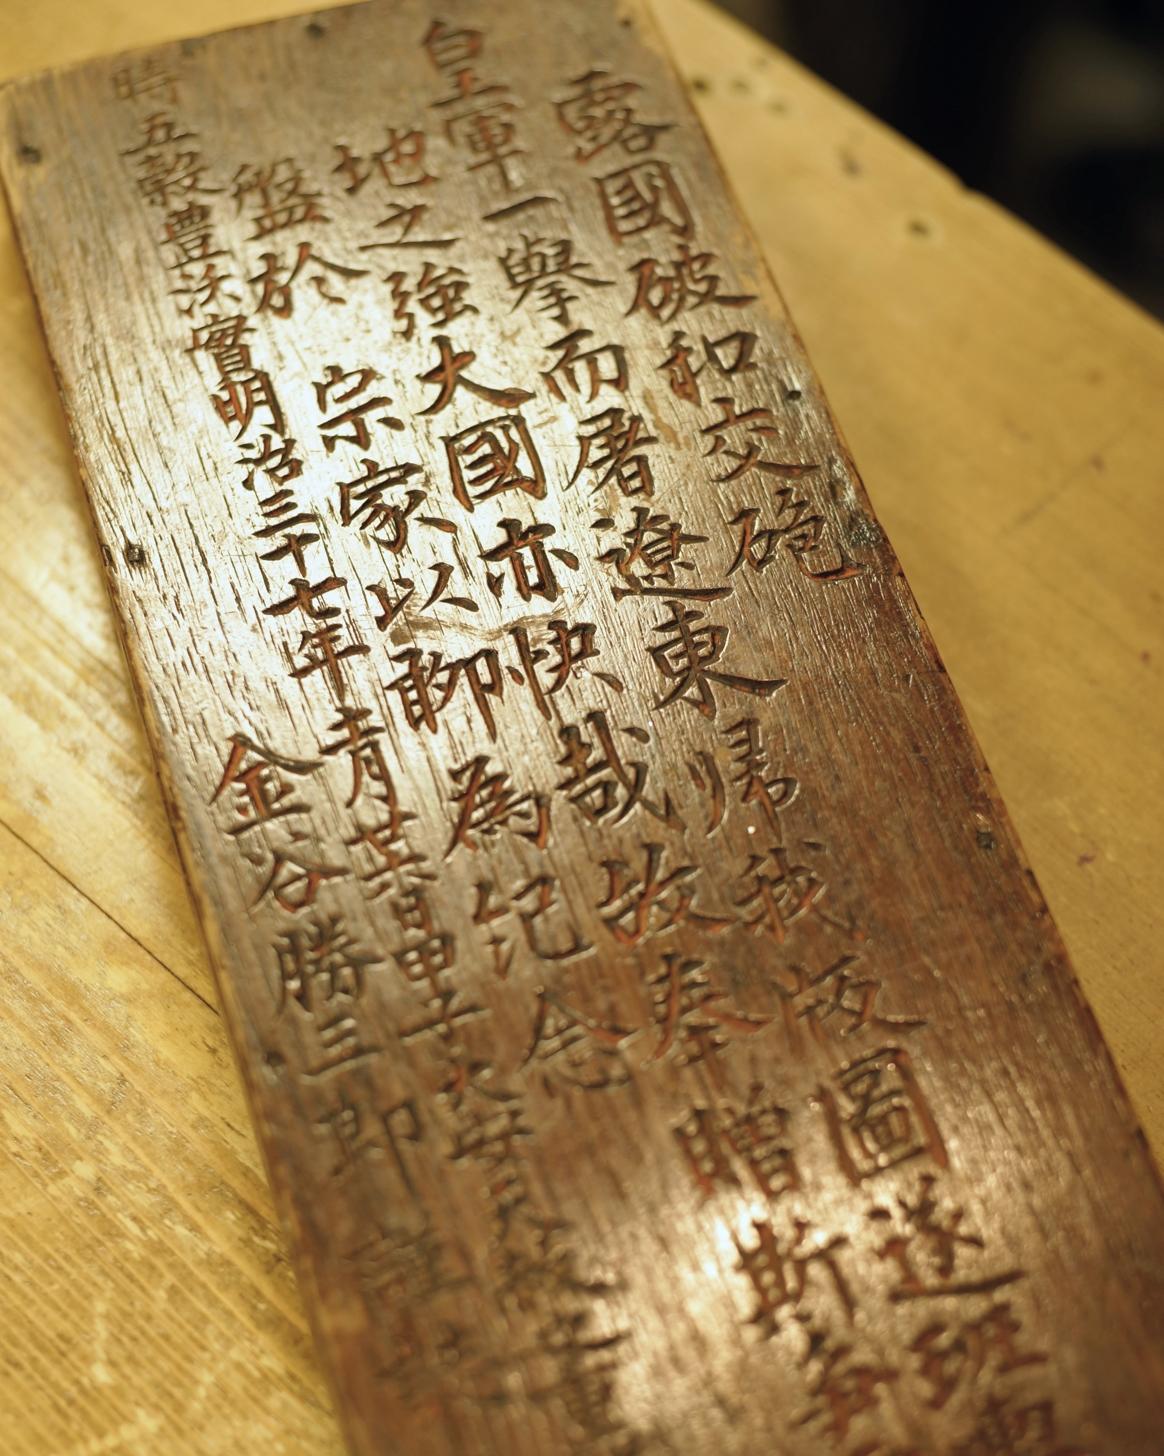 露國破和交砲
皇軍一擧而屠遼東帰我版圖遂班
地之強大國亦快哉故奉贈斯
盤於 宗家以聊為紀念
時五穀豊沃實明治三十七年
金谷勝三郎